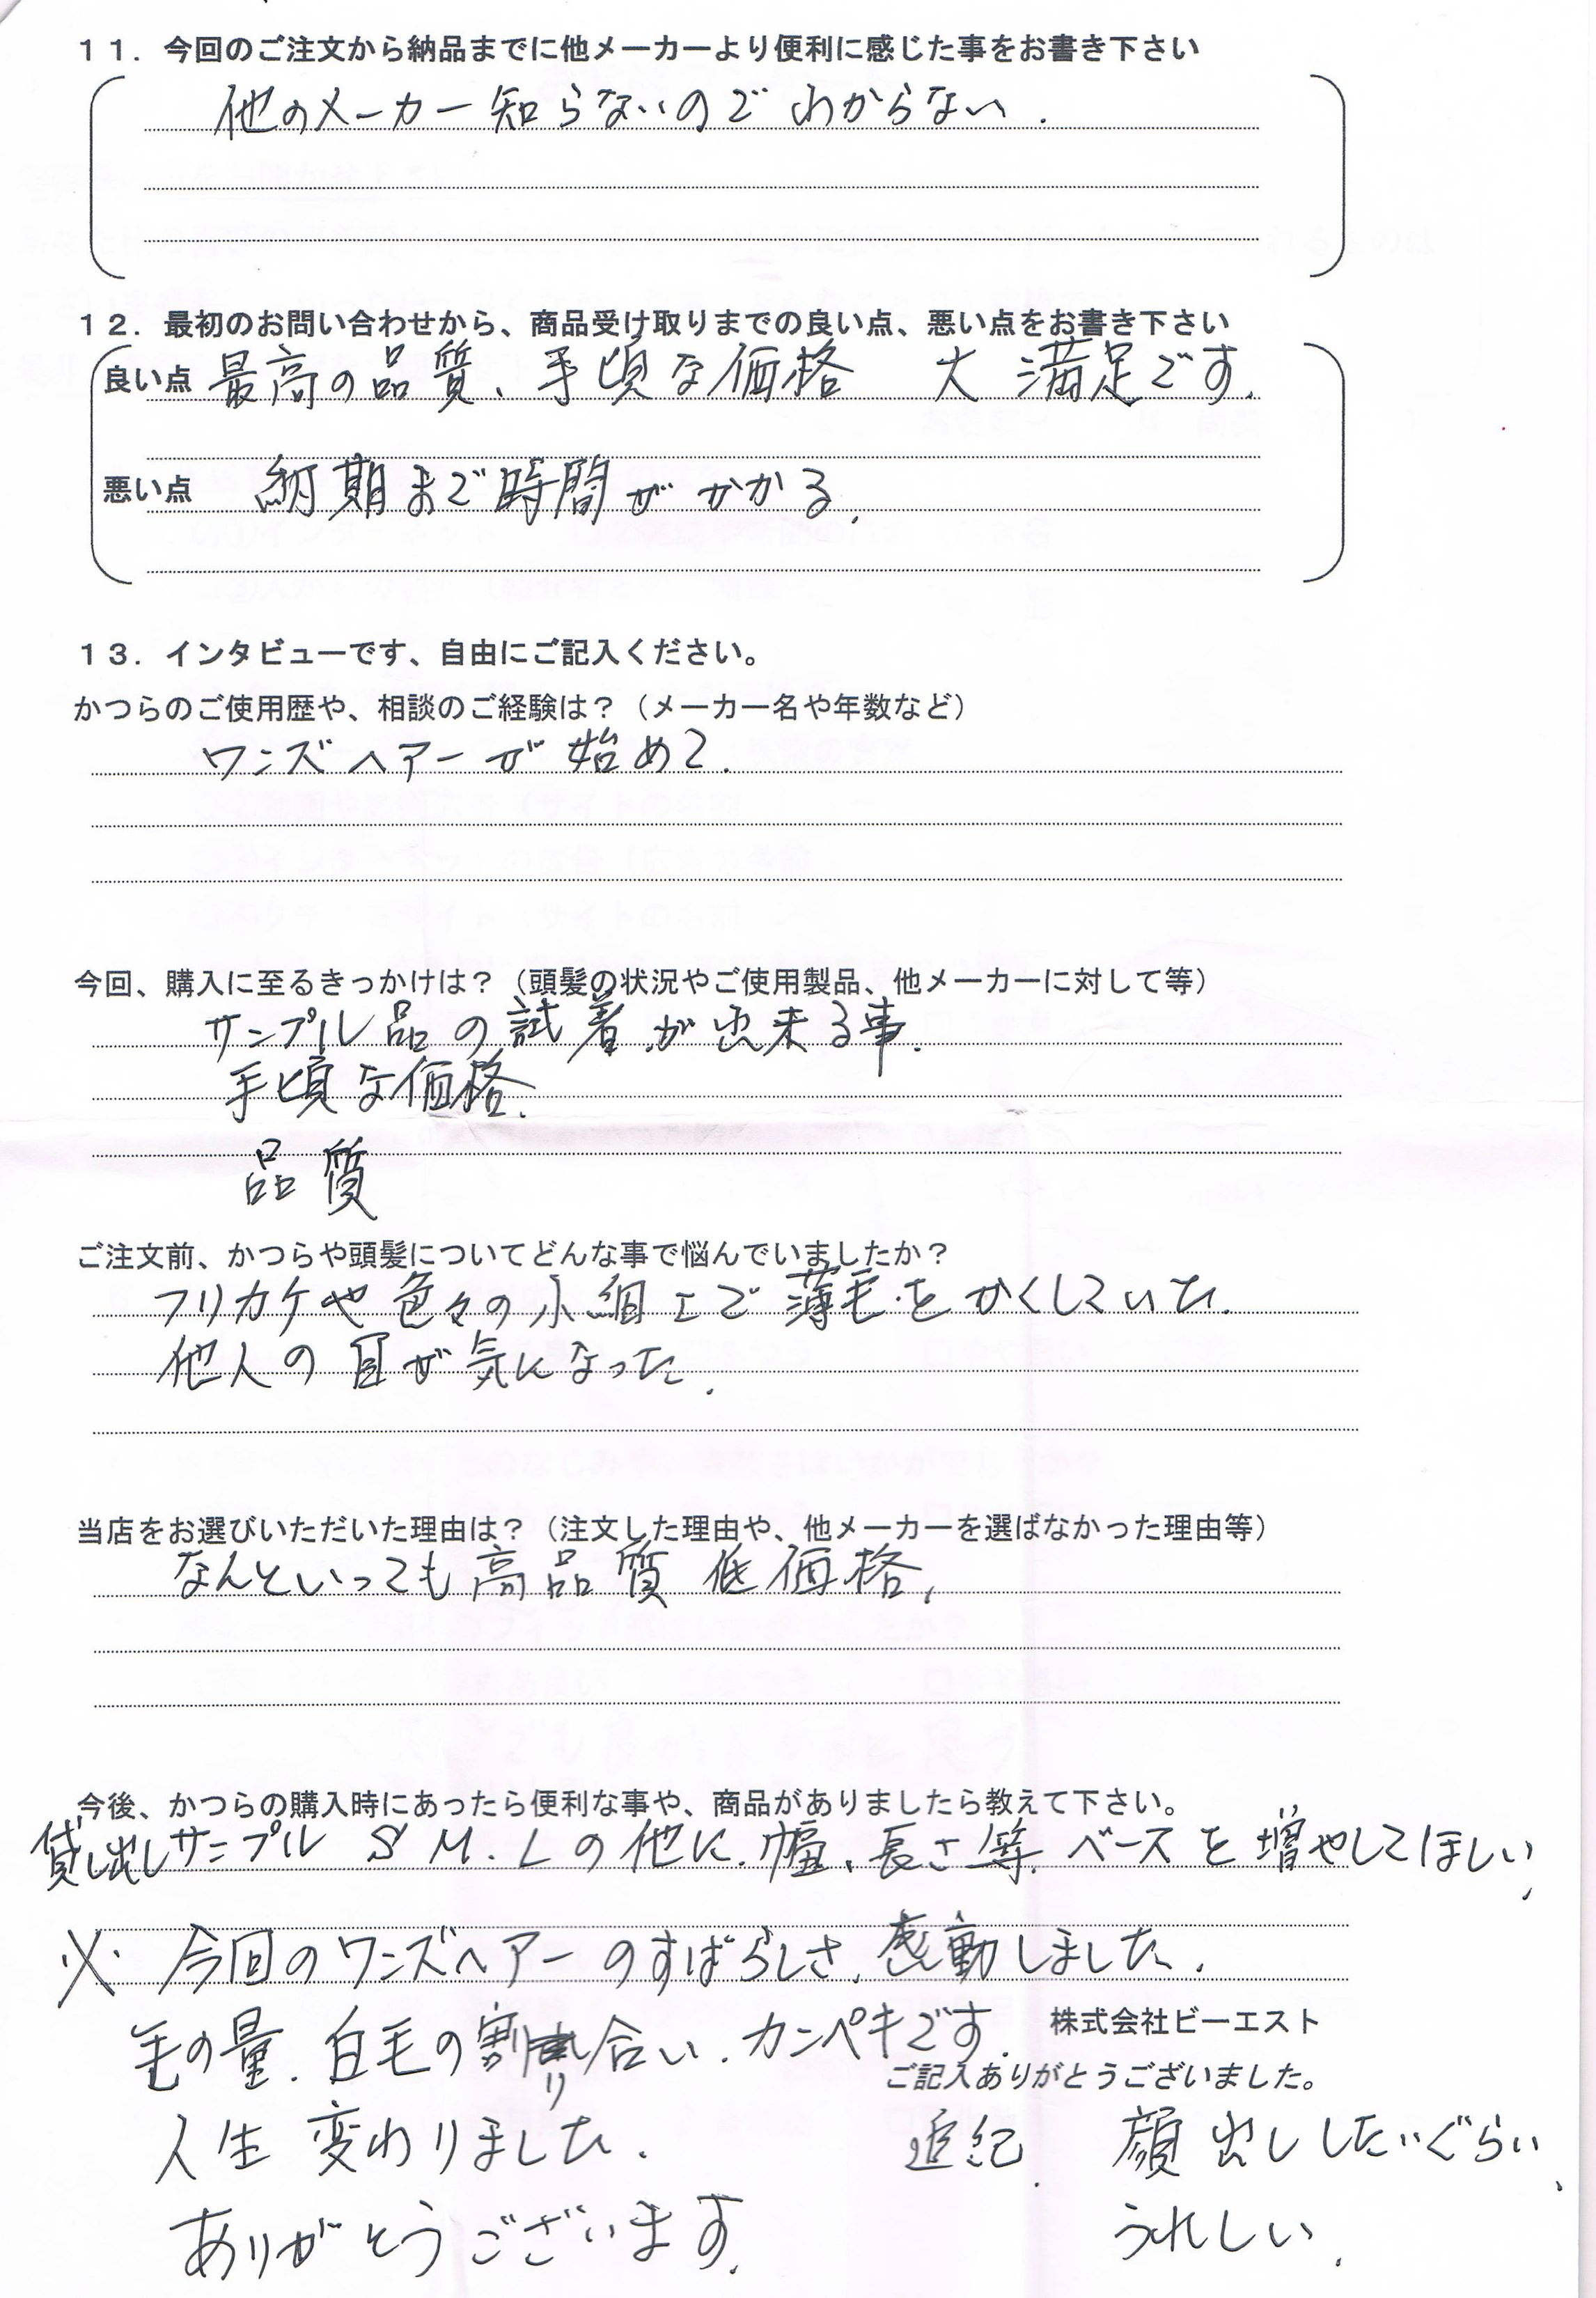 １１．今回のご注文から納品までに他メーカーより便利に感じた事をお書き下さい
他のメーカー知らないのでわからない.
１２．最初のお問い合わせから、商品受け取りまでの良い点、悪い点をお書き下さい
良い点 最高の品質、手頃な価格 大満足です.
悪い点 納期まで時間がかかる.
１３．インタビューです、自由にご記入ください。
かつらのご使用歴や、相談のご経験は？（メーカー名や年数など）
ワンズヘアーが始めて.
今回、購入に至るきっかけは？（頭髪の状況やご使用製品、他メーカーに対して等）
サンプル品の試着が出来る事.
手頃な価格.
品質
ご注文前、かつらや頭髪についてどんな事で悩んでいましたか？
フリカケや色々の小細工で薄毛をかくしていた.
他人の目が気になった.
当店をお選びいただいた理由は？（注文した理由や、他メーカーを選ばなかった理由等）
なんといっても高品質 低価格,
今後、かつらの購入時にあったら便利な事や、商品がありましたら教えて下さい。
貸し出しサンプル S M.Lの他に.幅、長さ等.ベースを増やしてほしい,
※ 今回のワンズヘアーのすばらしさ.感動しました.
毛の量.白毛の割り合い.カンペキです.
株式会社ビーエスト
ご記入ありがとうございました。
人生変わりました.
ありがとうございます.
追紀. 顔出ししたいぐらい、
うれしい.